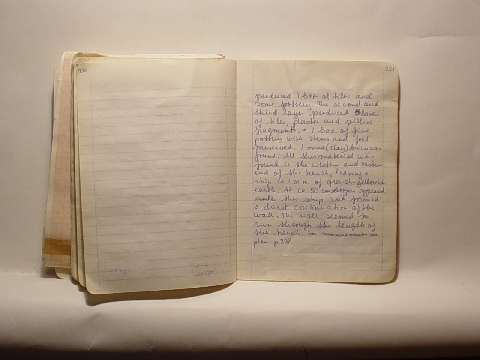 230
231
produced 1 box of tiles and
some pottery. The second and
third days produced 5 boxes
of tiles, plaster and
fragments, + 1 box of fine
pottery with stems and feet
preserved. 1 (clay) was
found. All this material was
found in the western and
end of the trench, leaving a
strip ca 20 m. of yellowish
earth. At ca 50 appeared
under this strip and formed
a direct continuation of the
wall. The wall seemed to
run through the length of
the trench for measurements see
plan p.228.